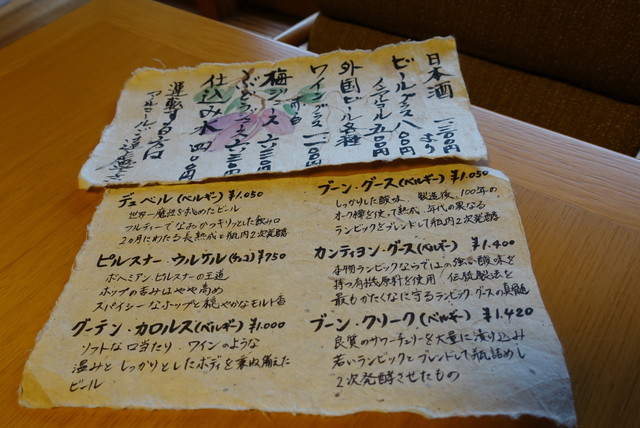 日本酒 一、三〇〇円より
ビール グラス 八〇〇円
ノンアルコール 五〇〇円
外国ビール各種
ワイン グラス 一、二〇〇円
赤 白
梅ジュース 六三〇円
ぶどうジュース 六三〇円
仕込み水 四〇〇円
運転する方は
デュベル(ベルギー) ¥1.050
世界一魔性を秘めたビール
フルーティーでなおかつキリッとした飲み口
2カ月にわたる長熟成と瓶内2次発酵
ピルスナー・ウルケル(チェコ) ¥750
ボヘミアン・ピルスナーの王道
ホップの苦みはやや高め
スパイシーなホップと穏やかなモルト香
グーデン・カロルス(ベルギー) ¥1.000
ソフトな口当たり・ワインのような
温みとしっかりとしたボディを兼ね備えた
ビール
ブーン・グース(ベルギー) ¥1.050
しっかりした酸味 製造後、100年の
オーク樽を使って熟成、年代の異なる
ランビックをブレンドして瓶内2次発酵
カンティヨン・グース(ベルギー) ¥1.400
本物ランビックならではの強い酸味を
持つ有機原料を使用 伝統製法を
最もかたくなに守るランビック、グースの真髄
ブーン・クリーク(ベルギー) ¥1.420
良質のサワーチェリーを大量に漬け込み
若いランビックとブレンドして瓶詰めし
2次発酵させたもの